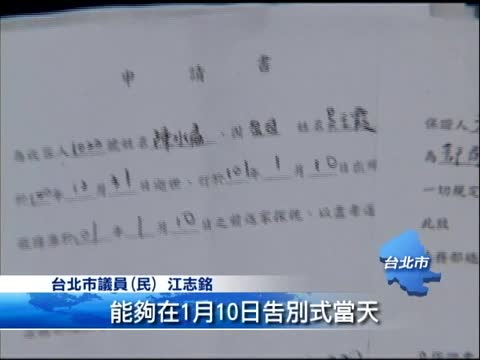 申請書
為收容人1033號姓名陳水扁、因 姓名吳王霞
於100年12月31日逝世、訂於101年1月10日出殯
敬請准於101年1月10日之前返家探視、以盡孝道
保證人
為
一切規定
此致
台北市
台北市議員(民) 江志銘
能夠在1月10日告別式當天